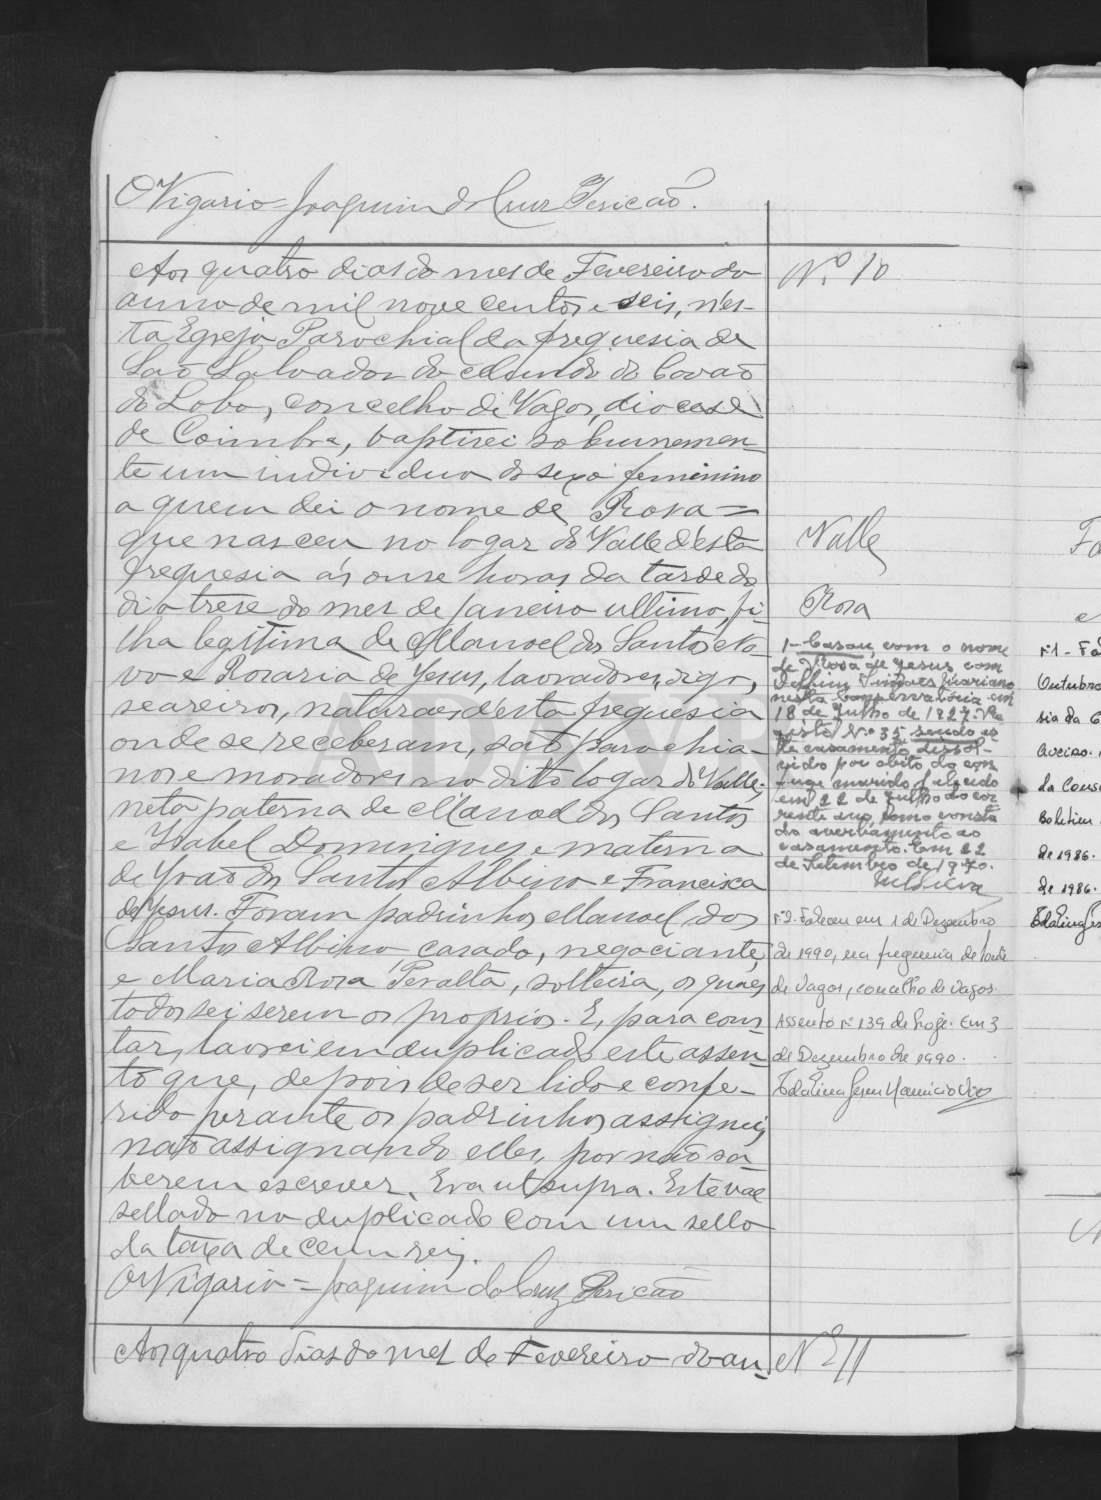 O Vigario Joaquim da Cruz Pericão.
Aos quatro dias do mes de Fevereiro do
anno de mil nove centos e seis, n'es-
ta Egreja Parochial da freguesia de
São Salvador do Mundo do Covão
do Lobo, concelho de Vagos, diocese
de Coimbra, baptisei solemnemen-
te um individuo do sexo feminino
a quem dei o nome de Rosa =
que nasceu no logar do Valle d'esta
freguesia ás onse horas da tarde do
dia trese do mes de Janeiro ultimo, fi-
lha legitima de Manoel dos Santos No-
vo e Rosaria de Jesus, lavradores, digo,
seareiros, naturaes d'esta freguesia
onde se receberam, são parochia-
nos e moradores no dito logar do Valle;
neta paterna de Manoel dos Santos
e Isabel Domingues e materna
de João dos Santos Albino e Francisca
de Jesus. Foram padrinhos Manoel dos
Santos Albino, casado, negociante,
e Maria Rosa Peralta, solteira, os quaes
todos sei serem os proprios. E, para cons-
tar, lavrei em duplicado este assen-
to que, depois de ser lido e confe-
rido perante os padrinhos assignei,
não assignando elles, por não sa-
berem escrever. Era ut supra. Este vae
sellado no duplicado com um sello
da taxa de cem reis.
O Vigario = Joaquim da Cruz Pericão
Aos quatro dias do mes de Fevereiro do an-
Nº 10
Valle
Rosa
1 - Casou, com o nome
de Rosa de Jesus com
Delfim Simões Mariano
nesta Conservatória em
18 de Julho de 1927. Re
gisto Nº 35 sendo es
te casamento dissol-
vido por obito do con
juge marido, falecido
em 22 de Julho do cor
rente ano, como consta
do averbamento ao
casamento. Em 22
de Setembro de 1970.
Nº 2. Faleceu em 1 de Dezembro
de 1990, na freguesia de
de Vagos, concelho de Vagos.
Assento nº 139 de hoje. Em 3
de Dezembro de 1990.
Nº 11
Nº 1 - Fa
Outubro
sia da
Aveiro.
da Cons
Boletim
de 1986.
de 1986.
ADAVR